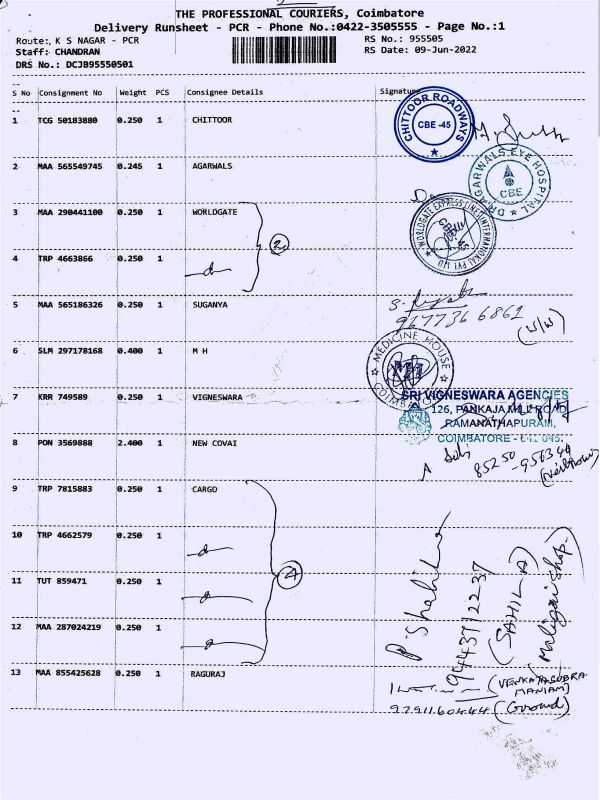 THE PROFESSIONAL COURIERS, Coimbatore
Delivery Runsheet - PCR - Phone No.:0422-3505555 - Page No.:1
Route:, K S NAGAR - PCR
RS No.: 955505
Staff: CHANDRAN
RS Date: 09-Jun-2022
DRS No.: DCJB95550501
S No Consignment No Weight PCS Consignee Details Signature
1 TCG 50183880 0.250 1 CHITTOOR
CHITTOOR ROADWAYS
CBE -45
2 MAA 565549745 0.245 1 AGARWALS
DR.AGARWALS EYE HOSPITAL
CBE
3 MAA 290441100 0.250 1 WORLDGATE
WORLDGATE EXPRESS LINES INTERNATIONAL PVT LTD
4 TRP 4663866 0.250 1
2
5 MAA 565186326 0.250 1 SUGANYA
9677366862
(W/W)
6 SLM 297178168 0.400 1 M H
MEDICINE HOUSE
COIMBATORE
7 KRR 749589 0.250 1 VIGNESWARA
SRI VIGNESWARA AGENCIES
126, PANKAJA MILL ROAD,
RAMANATHAPURAM,
COIMBATORE - 641 045.
8 PON 3569888 2.400 1 NEW COVAI
85250
-95634
9 TRP 7815883 0.250 1 CARGO
10 TRP 4662579 0.250 1
11 TUT 859471 0.250 1
4
12 MAA 287024219 0.250 1
P. Shahila
9443712237
(SAHILA)
(Maligai shop.)
13 MAA 855425628 0.250 1 RAGURAJ
(VENKATASUBRA
MANIAM)
9791160444
(Ground)